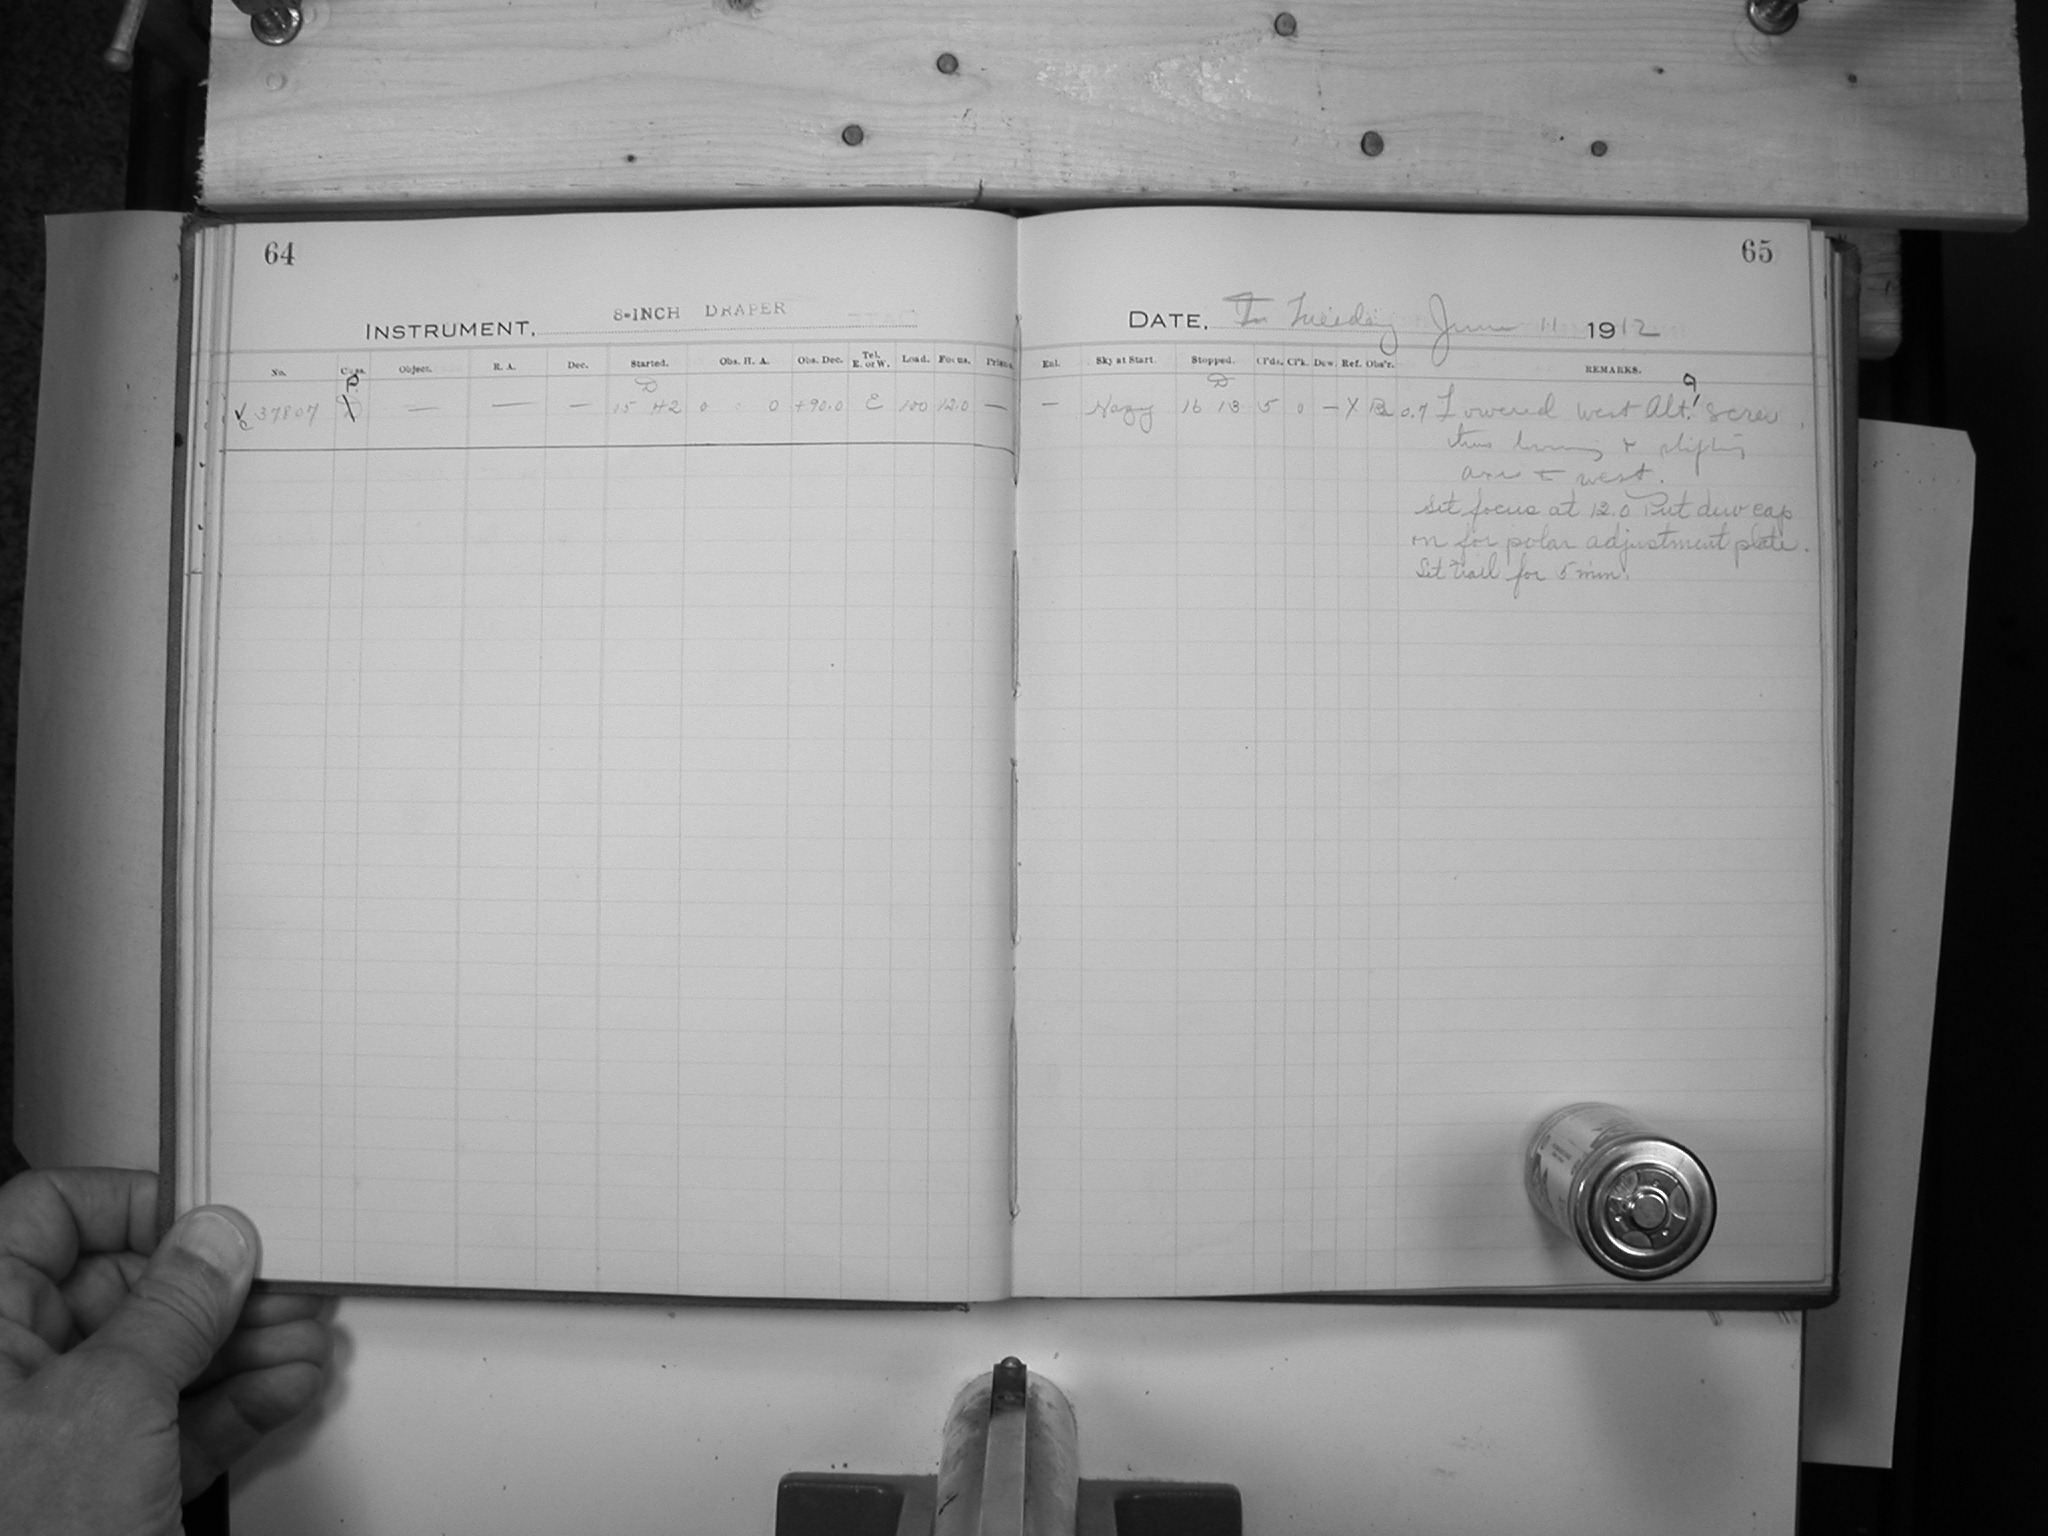 64
INSTRUMENT. 8-INCH DRAPER
No. Class. Object. R. A. Dec. Started. Obs. H. A. Obs. Dec. Tel. E. or W. Load. Focus. Prism.
P D
37807 — — — 15 42 0 0 +90.0 E 100 12.0 —
65
DATE. Tuesday June 11 1912
Enl. Sky at Start. Stopped. Cl'ds. Cl'k. Dew. Ref. Obs'r. REMARKS.
D 9
— Hazy 16 13 5 0 — 0.7 Lowered west Alt. screw
thus &
axis west.
Set focus at 12.0 Put dew cap
on for polar adjustment plate.
Set trail for 5 min.